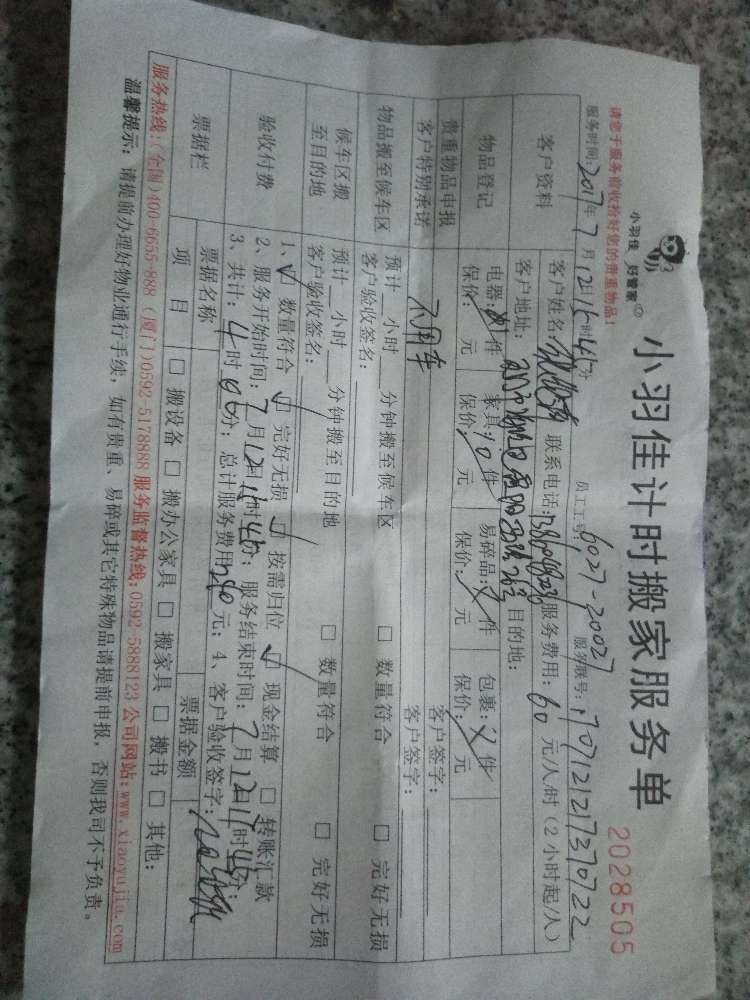 小羽佳 好管家
小羽佳计时搬家服务单
2028505
请您于服务前收拾好您的贵重物品！
员工工号：6027-20027
服务时间：2017年7月12日15时45分
服务账号：
客户资料
客户姓名：
联系电话：
服务费用：60元/人/时（2小时起/人）
客户地址：
目的地：
物品登记
电器： 件 家具：10件 易碎品： 件 包裹： 件
保价： 元 保价： 元 保价： 元 保价： 元
贵重物品申报 客户签字：
客户特别承诺 不用车 客户签字：
物品搬至候车区
预计 小时 分钟搬至候车区 □ 数量符合 □ 完好无损
客户验收签名：
候车区搬至目的地
预计 小时 分钟搬至目的地 □ 数量符合 □ 完好无损
客户验收签名：
验收付费
1、☑ 数量符合 ☑ 完好无损 ☑ 按需归位 ☑ 现金结算 □ 转账汇款
2、服务开始时间：7月12日15时45分；服务结束时间：7月12日 时45分；
3、共计：4时 分；总计服务费用 元；4、客户验收签字：
票据栏
票据名称 票据金额
项 目 □ 搬设备 □ 搬办公家具 □ 搬家具 □ 搬书 □ 其他：
服务热线：(全国)400-6655-888 (厦门)0592-5178888 服务监督热线：0592-5888123 公司网站：www.xiaoyujia.com
温馨提示：请提前办理好物业通行手续，如有贵重、易碎或其它特殊物品请提前申报，否则我司不予负责。